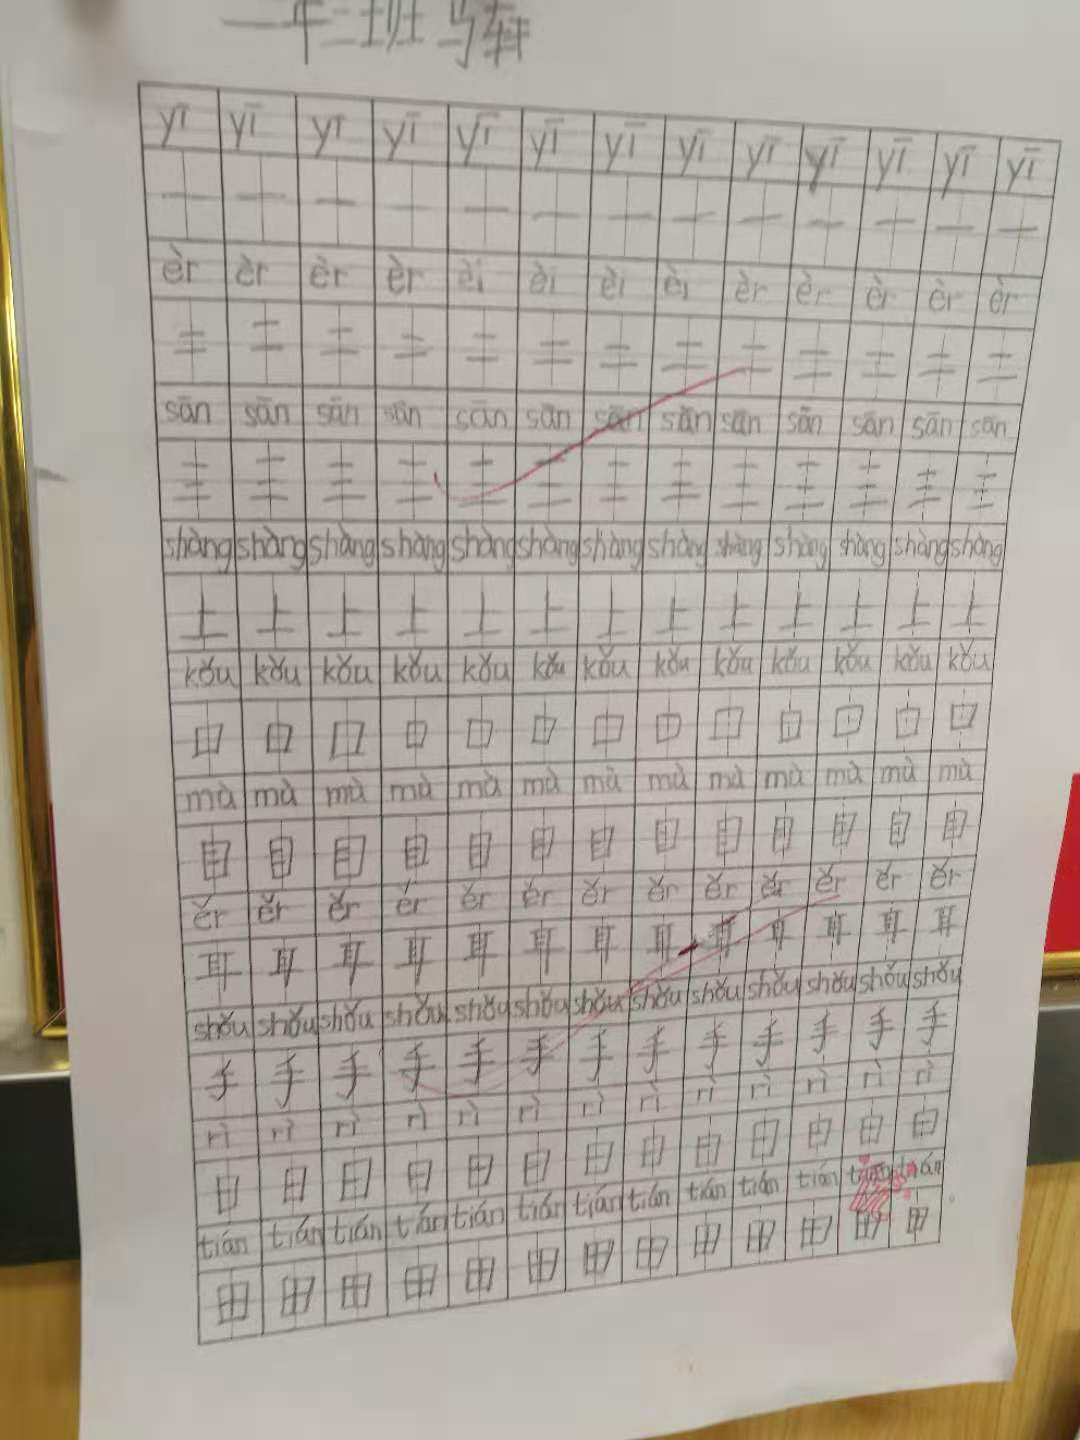 一年三班 马轩
yī yī yī yī yī yī yī yī yī yī yī yī yī
一 一 一 一 一 一 一 一 一 一 一 一 一
èr èr èr èr èi èi èi èi èr èr èr èr èr
二 二 二 二 二 二 二 二 二 二 二 二 二
sān sān sān sān sān sān sān sān sān sān sān sān sān
三 三 三 三 三 三 三 三 三 三 三 三 三
shàng shàng shàng shàng shàng shàng shàng shàng shàng shàng shàng shàng shàng
上 上 上 上 上 上 上 上 上 上 上 上 上
kǒu kǒu kǒu kǒu kǒu kǒu kǒu kǒu kǒu kǒu kǒu kǒu kǒu
口 口 口 口 口 口 口 口 口 口 口 口 口
mù mù mù mù mù mù mù mù mù mù mù mù mù
目 目 目 目 目 目 目 目 目 目 目 目 目
ěr ěr ěr ěr ěr ěr ěr ěr ěr ěr ěr ěr ěr
耳 耳 耳 耳 耳 耳 耳 耳 耳 耳 耳 耳 耳
shǒu shǒu shǒu shǒu shǒu shǒu shǒu shǒu shǒu shǒu shǒu shǒu shǒu
手 手 手 手 手 手 手 手 手 手 手 手 手
rì rì rì rì rì rì rì rì rì rì rì rì rì
日 日 日 日 日 日 日 日 日 日 日 日 日
tián tián tián tián tián tián tián tián tián tián tián tián tián
田 田 田 田 田 田 田 田 田 田 田 田 田